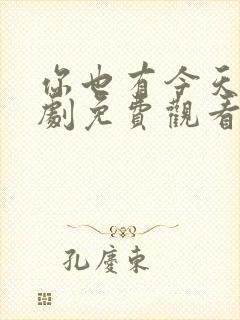 你也有今天
劇免費觀看
孔慶東